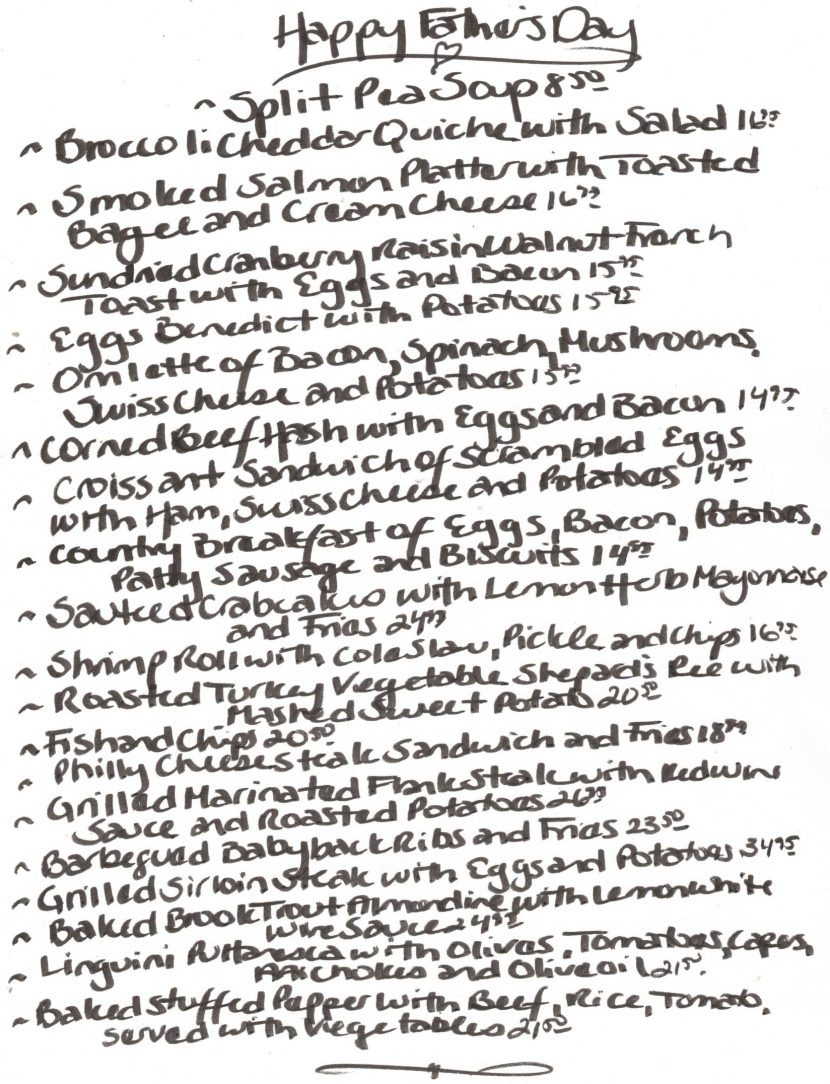 Happy Father's Day
~ Split Pea Soup 8.50
~ Broccoli Cheddar Quiche with Salad 16.95
~ Smoked Salmon Platter with Toasted
Bagel and Cream Cheese 16.95
~ Sundried Cranberry Raisin Walnut French
Toast with Eggs and Bacon 15.95
~ Eggs Benedict with Potatoes 15.95
~ Omlette of Bacon, Spinach, Mushrooms,
Swiss Cheese and Potatoes 15.50
~ Corned Beef Hash with Eggs and Bacon 14.95
~ Croissant Sandwich of Scrambled Eggs
with Ham, Swiss Cheese and Potatoes 14.95
~ Country Breakfast of Eggs, Bacon, Potatoes,
Patty Sausage and Biscuits 14.95
~ Sauteed Crabcakes with Lemon Herb Mayonnaise
and Fries 24.95
~ Shrimp Roll with Cole Slaw, Pickle and Chips 16.95
~ Roasted Turkey Vegetable Shepard's Pie with
Mashed Sweet Potato 20.50
~ Fish and Chips 20.50
~ Philly Cheese Steak Sandwich and Fries 18.95
~ Grilled Marinated Flank Steak with Red Wine
Sauce and Roasted Potatoes 26.95
~ Barbequed Babyback Ribs and Fries 23.50
~ Grilled Sirloin Steak with Eggs and Potatoes 34.95
~ Baked Brook Trout Almondine with Lemon White
Wine Sauce 24.95
~ Linguini Puttanesca with Olives, Tomatoes, Capers,
Artichokes and Olive oil 21.50
~ Baked Stuffed Pepper with Beef, Rice, Tomato,
served with Vegetables 21.50